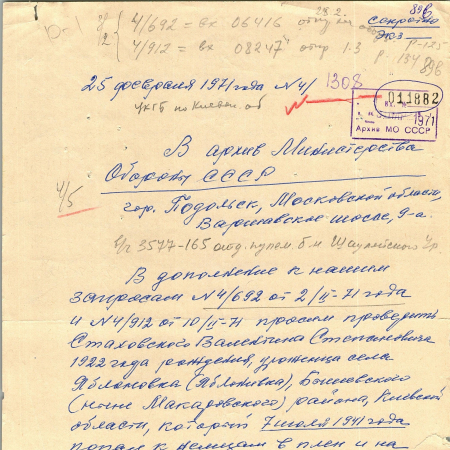 4/692 = вх 06416
28.2.
секретно
экз —
4/912 = вх 08247 отпр 1.3
р-154
25 февраля 1971 года № 4/ 1308
011882
вх. №
1971
Архив МО СССР
УКГБ по Киевск. об
В архив Министерства
Обороны СССР
4/5
гор. Подольск, Московской области,
Варшавское шоссе, 9-а.
3577-165 отд. пулем. б-н Шауляйского
В дополнение к нашим
запросам № 4/692 от 2/II-71 года
и № 4/912 от 10/II-71 просим проверить
Стаховского Валентина Степановича
1922 года рождения, уроженца села
Яблоновка (Яблонивка), Бышевского
(ныне Макаровского) района, Киевской
области, который 7 июля 1941 года
попал к немцам в плен и на